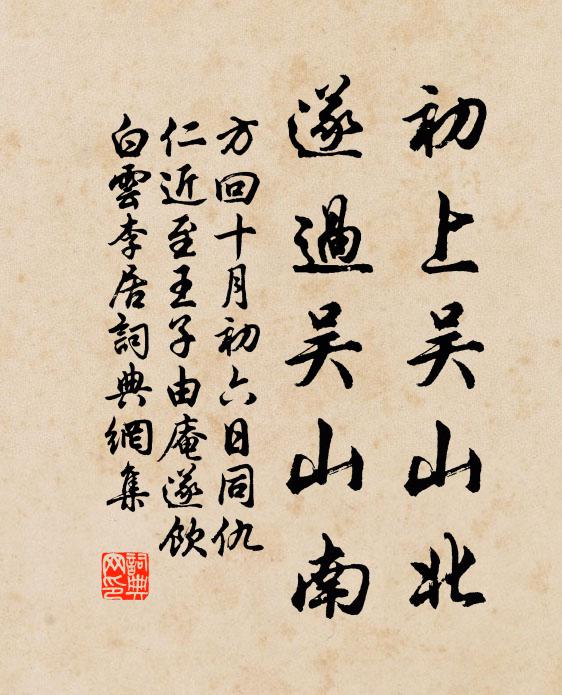 初上吴山北
遂過吴山南
方回十月初六日同仇
仁近至王子由庵遂飲
白雲李居詞典網集
詞典网印